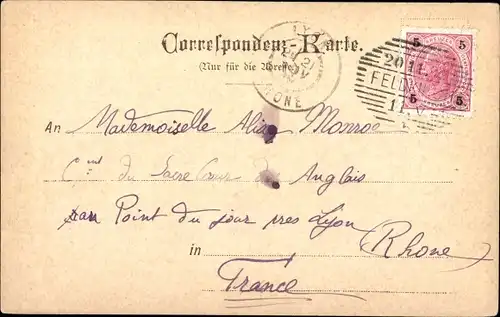 Correspondenz-Karte.
(Nur für die Adresse)
LYON
RHONE
5 5
5 5
20 11
FELD
11
An Mademoiselle Alice Monroe
Cent du Sacré Coeur des Anglais
au Point du jour près Lyon
(Rhone)
in France